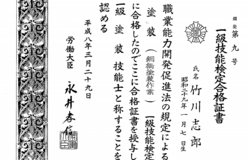 第九号
一級技能検定合格証書
氏名 竹川志郎
昭和二十九年一月七日生
職業能力開発促進法の規定による
塗装(鋼橋塗装作業)一級技能検定
に合格したのでここに合格証書を授与し
一級塗装技能士と称することを
認める
平成八年三月二十九日
労働大臣 永井孝信